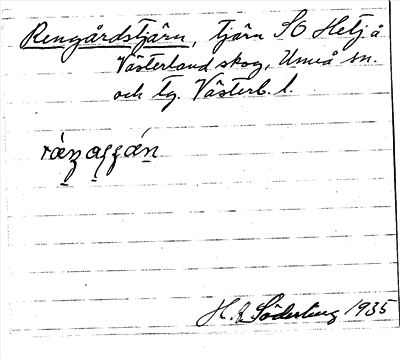 Rengårdstjärn, tjärn SO Hetjå
Västerland skog, Umeå sn.
och tg. Västerb. l.
H. Söderberg 1935